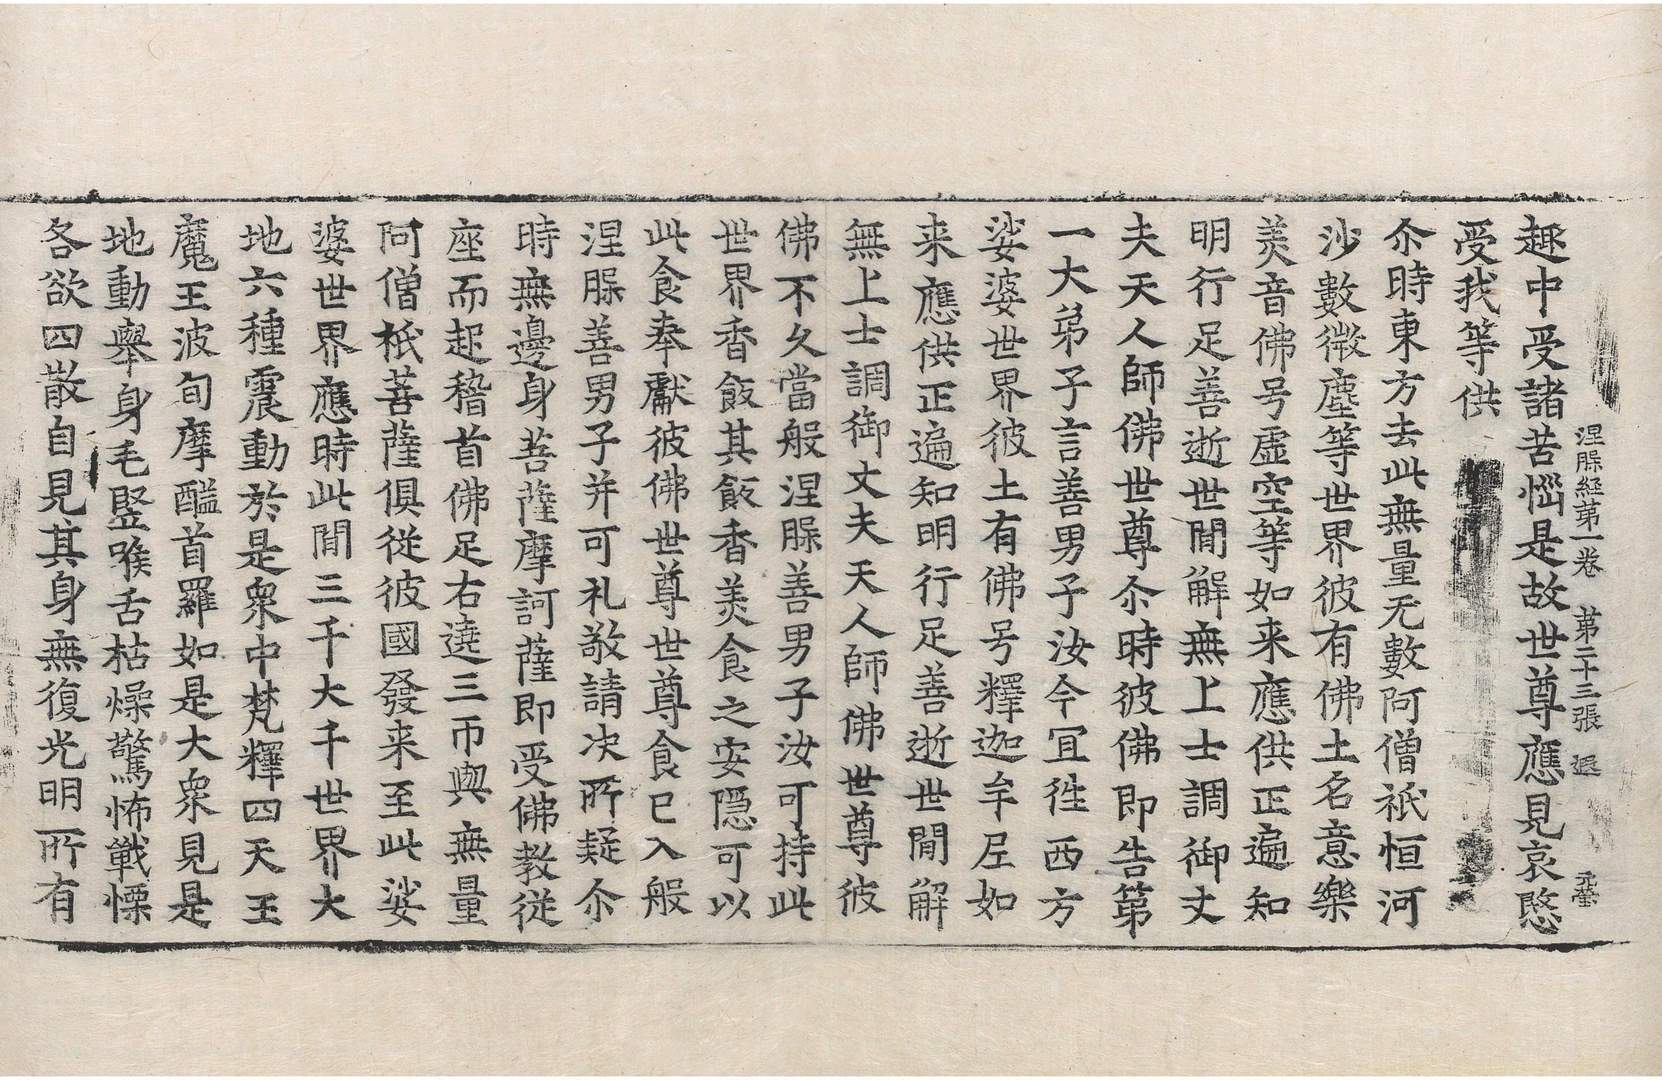 涅脲経苐一卷　苐二十三張　遐
趣中受諸苦惱是故世尊應見哀愍
受我等供
尒時東方去此無量无數阿僧祇恒河
沙數微塵等世界彼有佛土名意樂
美音佛号虛空等如来應供正遍知
明行足善逝世間解無上士調御丈
夫天人師佛世尊尒時彼佛即告第
一大弟子言善男子汝今宜徃西方
娑婆世界彼土有佛号釋迦牟尼如
来應供正遍知明行足善逝世間解
無上士調御丈夫天人師佛世尊彼
佛不久當般涅脲善男子汝可持此
世界香飯其飯香美食之安隱可以
此食奉獻彼佛世尊世尊食已入般
涅脲善男子并可礼敬請决所疑尒
時無邊身菩薩摩訶薩即受佛教従
座而起稽首佛足右遶三帀與無量
阿僧祇菩薩俱従彼國發来至此娑
婆世界應時此間三千大千世界大
地六種震動於是衆中梵釋四天王
魔王波旬摩醯首羅如是大衆見是
地動舉身毛竪喉舌枯燥驚怖戰慄
各欲四散自見其身無復光明所有